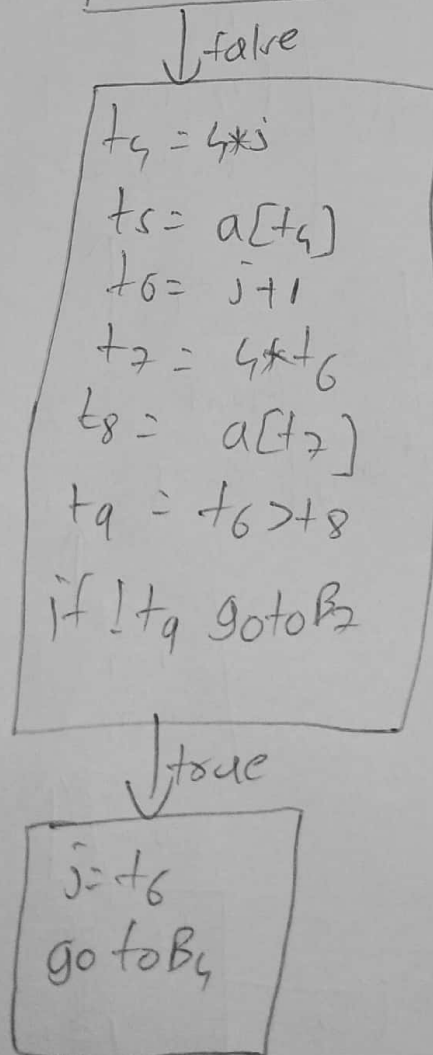 false
t4 = 4*j
t5 = a[t4]
t6 = j+1
t7 = 4*t6
t8 = a[t7]
t9 = t6>t8
if !t9 goto B2
true
j=t6
go to B4